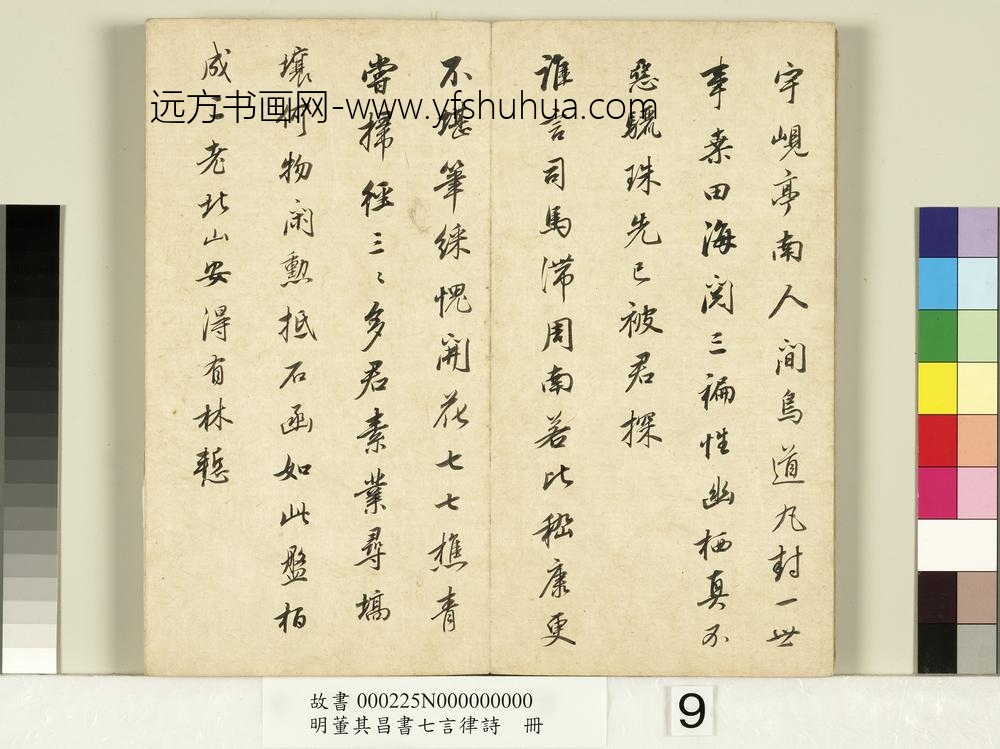 宇峴亭南人間鳥道丸封一世
事桑田海閱三褊性幽栖真不
惡驪珠先已被君探
誰言司馬滯周南若比嵇康更
不堪筆綵愧開花七七樵青
嘗掃徑三〻多君素業尋墳
壤何物閑勲抵石函如此盤桓
成二老北山安得有林慙
远方书画网-www.yfshuhua.com
故書 000225N000000000
明董其昌書七言律詩 冊
9